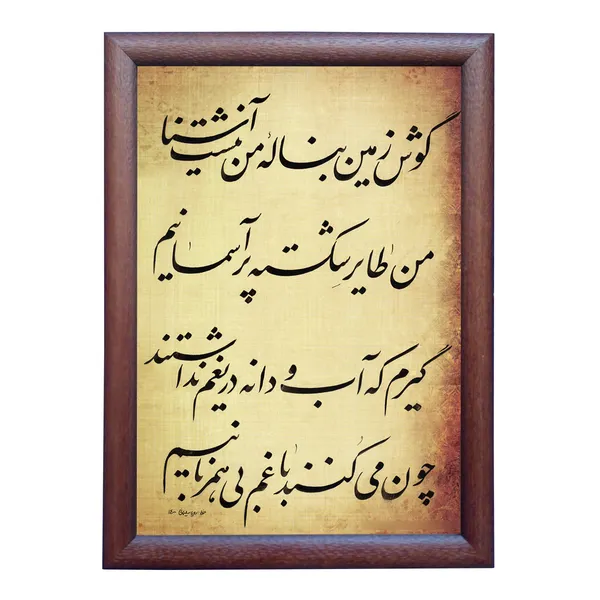 گوش زمین بنالهٔ من نیست آشنا
من طایر شکسته پر آسمانیم
گیرم که آب و دانه دریغم نداشتند
چون می کنند با غم بی همزبانیم